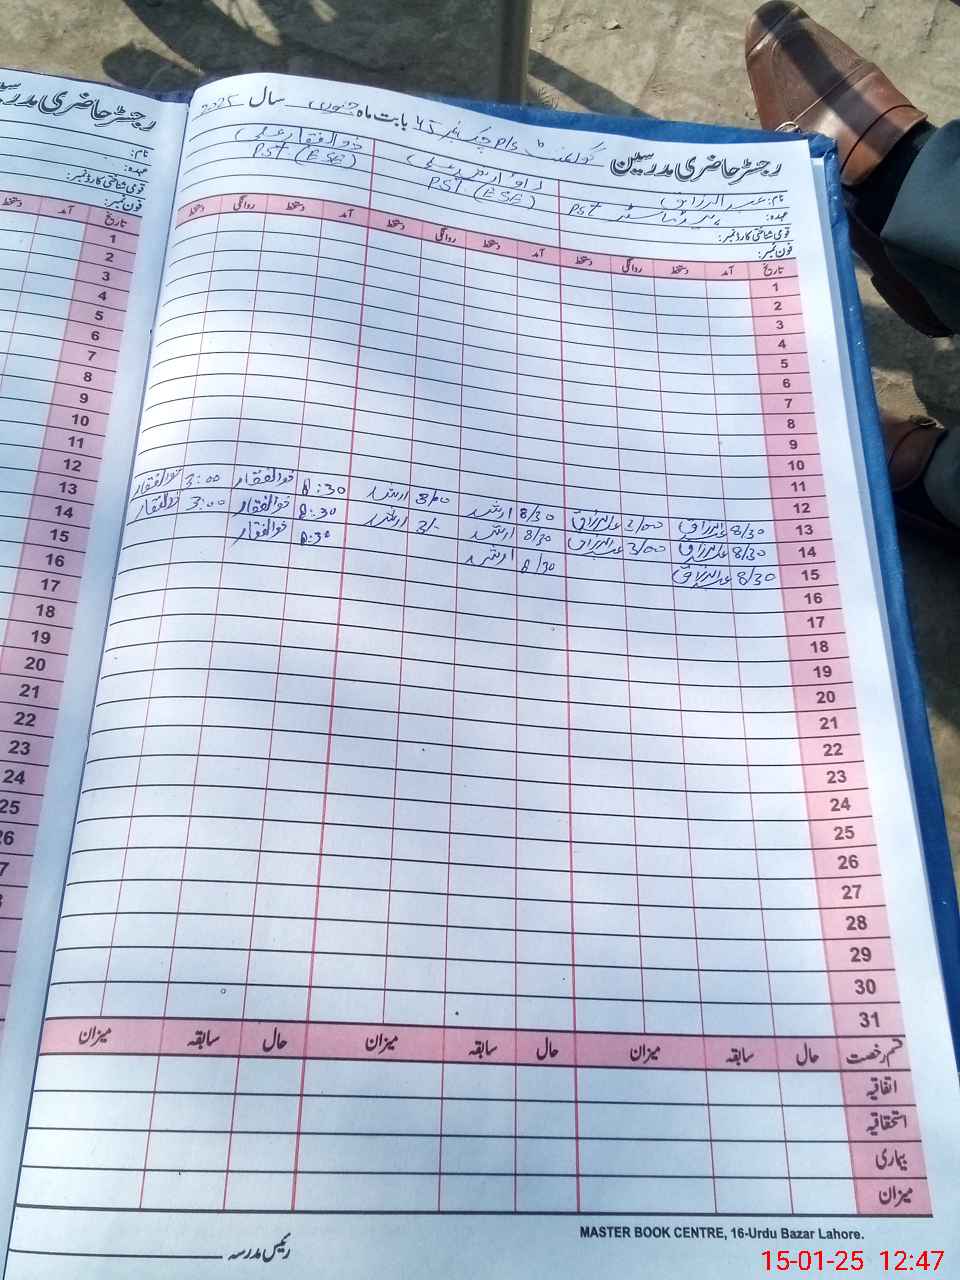 رجسٹر حاضری مدرسین گورنمنٹ P/S چک نمبر 45 بابت ماہ جنوری سال 2025
نام: عبدالرزاق
ذوالفقار علی
عہدہ: ہیڈ ماسٹر PST
PST (ESE)
PST (ESE)
قومی شناختی کارڈ نمبر:
فون نمبر:
تاریخ آمد دستخط روانگی دستخط آمد دستخط روانگی دستخط آمد دستخط روانگی دستخط
1
2
3
4
5
6
7
8
9
10
11
12
13 8/30 عبدالرزاق 3/00 عبدالرزاق 8/30 ارشد 3/00 ارشد 8:30 ذوالفقار 3:00 ذوالفقار
14 8/30 عبدالرزاق 3/00 عبدالرزاق 8/30 ارشد 3/- ارشد 8:30 ذوالفقار 3:00 ذوالفقار
15 8/30 عبدالرزاق 8/30 ارشد 8:30 ذوالفقار
16
17
18
19
20
21
22
23
24
25
26
27
28
29
30
31
قسم رخصت حال سابقہ میزان حال سابقہ میزان حال سابقہ میزان
اتفاقیہ
استحقاقیہ
بیماری
میزان
رئیس مدرسہ
MASTER BOOK CENTRE, 16-Urdu Bazar Lahore.
رجسٹر حاضری مدرسین
نام:
عہدہ:
قومی شناختی کارڈ نمبر:
فون نمبر:
تاریخ آمد دستخط
1
2
3
4
5
6
7
8
9
10
11
12
13
14
15
16
17
18
19
20
21
22
23
24
25
26
15-01-25 12:47